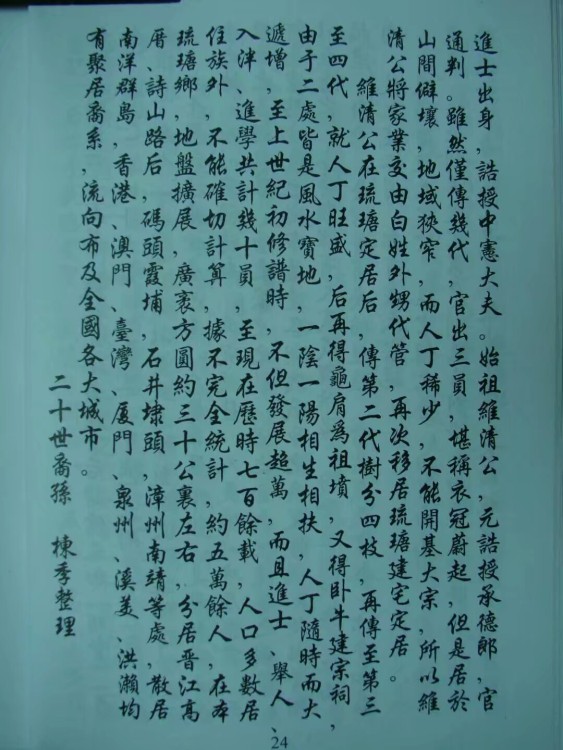 進士出身，誥授中憲大夫。始祖維清公，元誥授承德郎，官
通判。雖然僅傳幾代，官出三員，堪稱衣冠蔚起，但是居於
山間僻壤，地域狹窄，而人丁稀少，不能開基大宗，所以維
清公將家業交由白姓外甥代管，再次移居琉瑭建宅定居。
維清公在琉瑭定居后，傳第二代樹分四枝，再傳至第三
至四代，就人丁旺盛，后再得龜肩爲祖墳，又得卧牛建宗祠，
由于二處皆是風水寶地，一陰一陽相生相扶，人丁隨時而大
遞增，至上世紀初修譜時，不但發展超萬，而且進士、舉人、
入津、進學共計幾十員，至現在歷時七百餘載，人口多數居
住族外，不能確切計算，據不完全統計，約五萬餘人，在本
琉瑭鄉，地盤擴展，廣袤方圓約三十公裏左右，分居晋江高
厝、詩山路后，碼頭霞埔，石井埭頭，漳州南靖等處，散居
南洋群島，香港、澳門、臺灣、厦門、泉州、溪美、洪瀨均
有聚居裔系，流向布及全國各大城市。
二十世裔孫 棟季整理
24